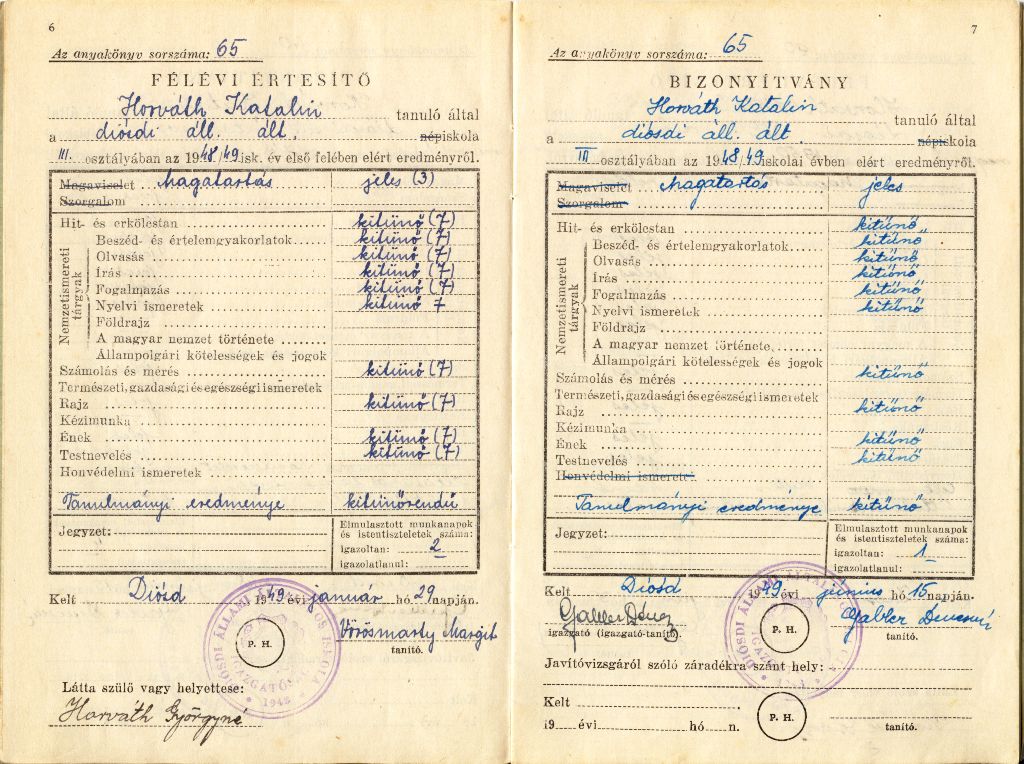 6
Az anyakönyv sorszáma: 65
FÉLÉVI ÉRTESÍTŐ
Horváth Katalin tanuló által
a diósdi áll. ált. népiskola
III. osztályában az 1948/49 isk. év első felében elért eredményről.
Magaviselet Magatartás jeles (3)
Szorgalom
Hit- és erkölcstan kitünő (7)
Nemzetismereti tárgyak
Beszéd- és értelemgyakorlatok kitünő (7)
Olvasás kitünő (7)
Írás kitünő (7)
Fogalmazás kitünő (7)
Nyelvi ismeretek kitünő 7
Földrajz
A magyar nemzet története
Állampolgári kötelességek és jogok
Számolás és mérés kitünő (7)
Természeti, gazdasági és egészségi ismeretek
Rajz kitünő (7)
Kézimunka
Ének kitünő (7)
Testnevelés kitünő (7)
Honvédelmi ismeretek
Tanulmányi eredménye kitünőrendű
Jegyzet:
Elmulasztott munkanapok
és istentiszteletek száma:
igazoltan: 2
igazolatlanul:
Kelt Diósd 1949 évi január hó 29 napján.
P. H.
Vörösmarty Margit
tanító.
DIÓSDI ÁLLAMI ÁLTALÁNOS ISKOLA
IGAZGATÓSÁGA
1948
Látta szülő vagy helyettese:
Horváth Györgyné
7
Az anyakönyv sorszáma: 65
BIZONYÍTVÁNY
Horváth Katalin tanuló által
a diósdi áll. ált népiskola
III osztályában az 1948/49 iskolai évben elért eredményről.
Magaviselet Magatartás jeles
Szorgalom
Hit- és erkölcstan kitünő
Nemzetismereti tárgyak
Beszéd- és értelemgyakorlatok kitünő
Olvasás kitünő
Írás kitünő
Fogalmazás kitünő
Nyelvi ismeretek kitünő
Földrajz
A magyar nemzet története
Állampolgári kötelességek és jogok
Számolás és mérés kitünő
Természeti, gazdasági és egészségi ismeretek
Rajz kitünő
Kézimunka
Ének kitünő
Testnevelés kitünő
Honvédelmi ismeretek
Tanulmányi eredménye kitünő
Jegyzet:
Elmulasztott munkanapok
és istentiszteletek száma:
igazoltan: 1
igazolatlanul:
Kelt Diósd 1949 évi június hó 15 napján.
Gábler
igazgató (igazgató-tanító).
P. H.
Gábler
tanító.
Javítóvizsgáról szóló záradékra szánt hely:
Kelt
19 évi hó n.
P. H.
tanító.